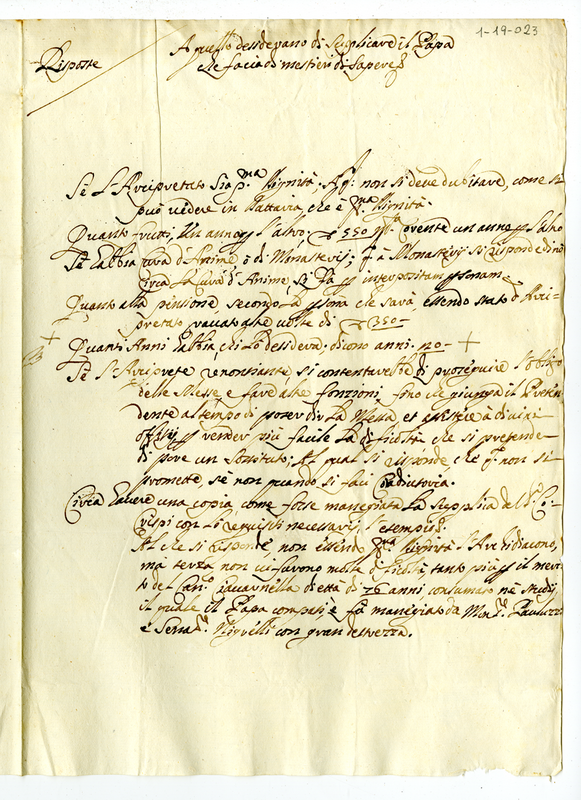 1-19-023
Risposte
A questo desiderano di supplicare il Papa
che facia di mestieri di sapere
Se l'Arcipretato sia p.ma dignità; A q. non si deve dubitare, come si
può vedere in Dattaria, che è p.ma dignità.
Quanto frutti, un anno p l'altro, 550 un anno p l'altro
Se habbia cura d'Anime, ò di Monasterij; q.to à Monasterij si risponde di no
circa la Cura d'Anime, si fa p interpositam personam
Quanto alla pensione, secondo la persona che sarà, essendo stato l'Arci-
pretato, altre volte di 350
Quanti Anni habbia, chi lo desidera; dicono anni 20
Se l'Arciprete renonciante, si contentarebbe di proseguire l'obligo
delle Messe, e fare altre fonzioni, sino che giunga il
dente al tempo di poter dir la Messa, et assistere à divini
offitij p render più facile la dificoltà che si pretende
di pore un sostituto; Al qual si risponde, che q. non si
promette, se non quando si faci Coadiutoria.
Circa havere una copia, come fosse maneggiata la supplica del S.r
con li requisiti necessarij,
Al che si risponde non essendo p.ma dignità l'Archidiacono,
ma terza non vi furono molta dificoltà, tanto più p il meri-
to del Can.co di età di 76 anni consumato nè studij
il quale il Papa compatì, e fù maneggiato da Mons.r
e con gran destrezza.